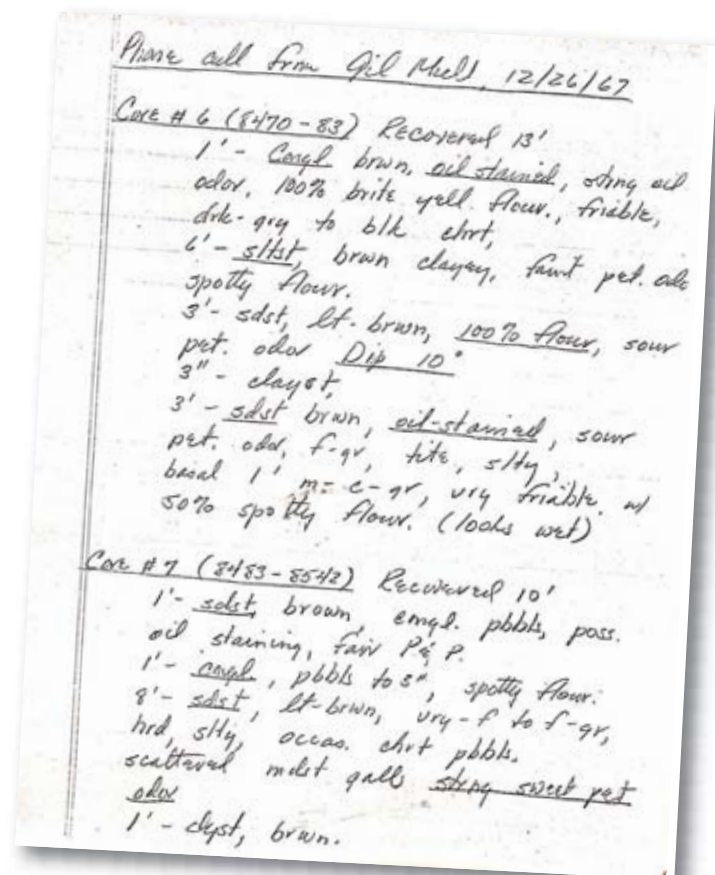 Phone call from Gil Mull, 12/26/67
Core # 6 (8470-83) Recovered 13'
1' - Congl brwn, oil stained, strng oil
odor, 100% brite yell. flour., friable,
drk-gry to blk chrt,
6' - sltst, brwn clayey, faint pet. odo
spotty flour.
3' - sdst, lt-brwn, 100% flour, sour
pet. odor Dip 10°
3" - clayst,
3' - sdst brwn, oil-stained, sour
pet. odor, f-gr, tite, slty,
basal 1' m-c-gr, vry friable. w/
50% spotty flour. (looks wet)
Core # 7 (8483-8542) Recovered 10'
1' - sdst, brown, cngl. pbbls, poss.
oil staining, fair P & P.
1' - congl, pbbls to 3", spotty flour.
8' - sdst, lt-brwn, vry-f to f-gr,
hrd, slty, occas. chrt pbbls.
scattered mdst galls strng sweet pet
odor
1' - clyst, brwn.